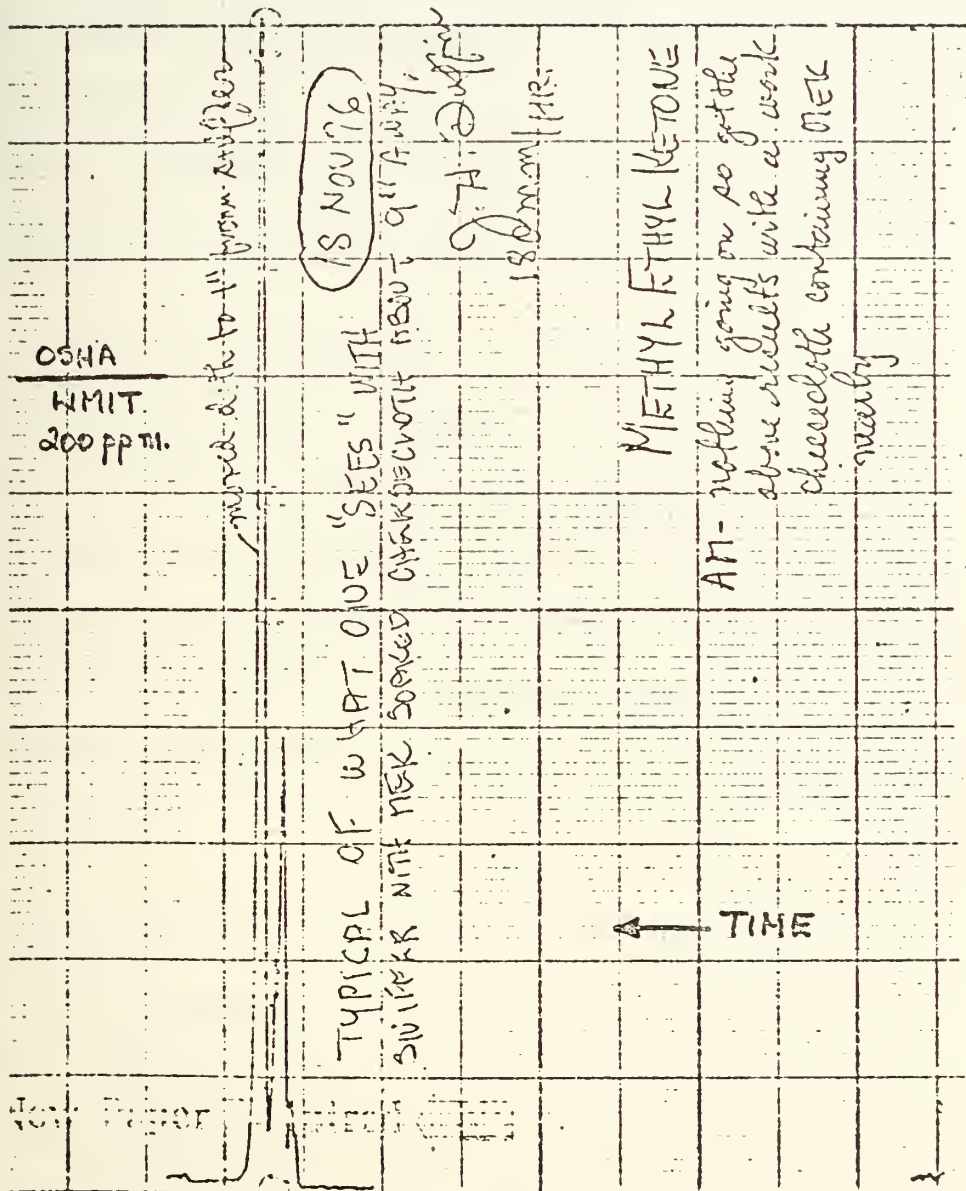 OSHA
LIMIT.
200 ppm.
moved cloth to 1" from sniffer
18 NOV 76
TYPICAL OF WHAT ONE "SEES" WITH
SNIFFER WITH MEK SOAKED ABOUT 9" AWAY,
J. H. Duffin
METHYL ETHYL KETONE
AM- nothing going on so got the
above results with a work
cheesecloth containing MEK
nearby
TIME